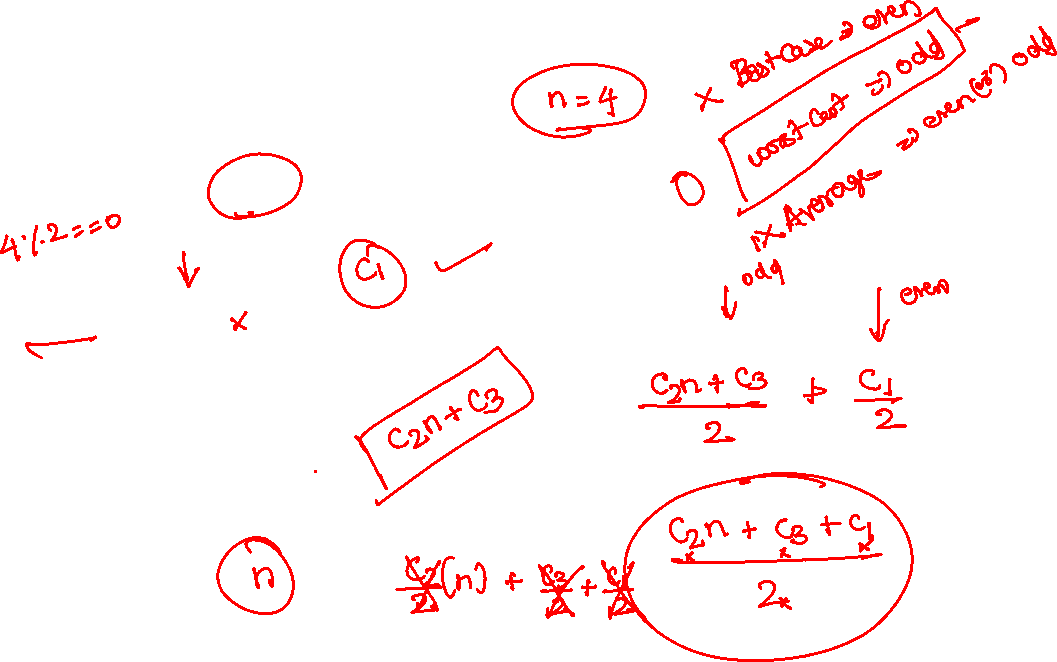 n = 4
× Best Case ⇒ even
worst Cast ⇒ odd
× Average ⇒ even (or) odd
4 % 2 == 0
C1
×
odd
even
C2n + C3
(C2n + C3)/2 + C1/2
n
C2/2 (n) + C3/2 + C1/2
(C2n + C3 + C1)/2